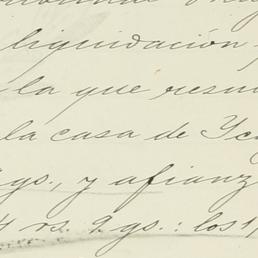 liquidación
la que resu
la casa de Yc
gs., y afianz
rs. 2 gs.: los